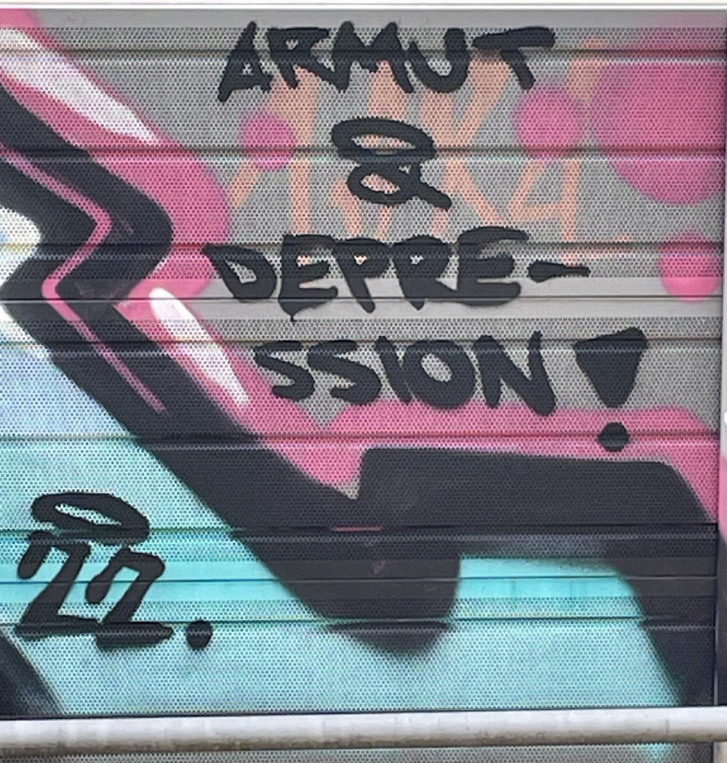 ARMUT
&
DEPRE-
SSION!
22.